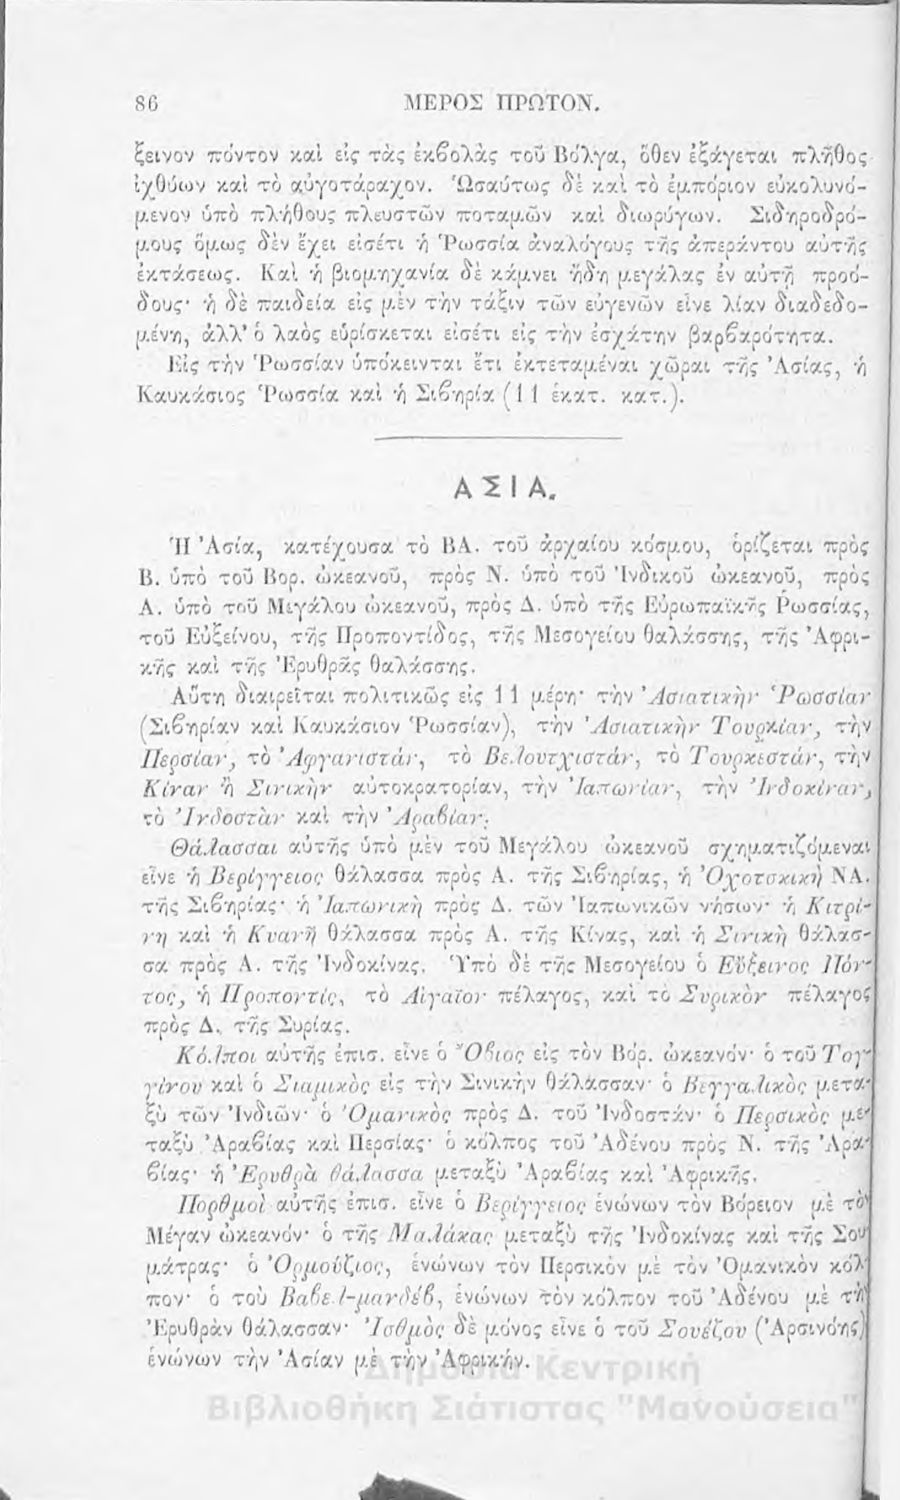 86 ΜΕΡΟΣ ΠΡΩΤΟΝ.
ξεινον πόντον καὶ εἰς τὰς ἐκβολὰς τοῦ Βόλγα, ὅθεν ἐξάγεται πλῆθος
ἰχθύων καὶ τὸ αὐγοτάραχον. Ὡσαύτως δὲ καὶ τὸ ἐμπόριον εὐκολυνό-
μενον ὑπὸ πλήθους πλευστῶν ποταμῶν καὶ διωρύγων. Σιδηροδρό-
μους ὅμως δὲν ἔχει εἰσέτι ἡ Ῥωσσία ἀναλόγους τῆς ἀπεράντου αὐτῆς
ἐκτάσεως. Καὶ ἡ βιομηχανία δὲ κάμνει ἤδη μεγάλας ἐν αὐτῇ προό-
δους· ἡ δὲ παιδεία εἰς μὲν τὴν τάξιν τῶν εὐγενῶν εἶνε λίαν διαδεδο-
μένη, ἀλλ’ ὁ λαὸς εὑρίσκεται εἰσέτι εἰς τὴν ἐσχάτην βαρβαρότητα.
Εἰς τὴν Ῥωσσίαν ὑπόκεινται ἔτι ἐκτεταμέναι χῶραι τῆς Ἀσίας, ἡ
Καυκάσιος Ῥωσσία καὶ ἡ Σιβηρία (11 ἑκατ. κατ.).
ΑΣΙΑ.
Ἡ Ἀσία, κατέχουσα τὸ ΒΑ. τοῦ ἀρχαίου κόσμου, ὁρίζεται πρὸς
Β. ὑπὸ τοῦ Βορ. ὠκεανοῦ, πρὸς Ν. ὑπὸ τοῦ Ἰνδικοῦ ὠκεανοῦ, πρὸς
Α. ὑπὸ τοῦ Μεγάλου ὠκεανοῦ, πρὸς Δ. ὑπὸ τῆς Εὐρωπαϊκῆς Ῥωσσίας,
τοῦ Εὐξείνου, τῆς Προποντίδος, τῆς Μεσογείου θαλάσσης, τῆς Ἀφρι-
κῆς καὶ τῆς Ἐρυθρᾶς θαλάσσης.
Αὕτη διαιρεῖται πολιτικῶς εἰς 11 μέρη· τὴν Ἀσιατικὴν Ῥωσσίαν
(Σιβηρίαν καὶ Καυκάσιον Ῥωσσίαν), τὴν Ἀσιατικὴν Τουρκίαν, τὴν
Περσίαν, τὸ Ἀφγανιστάν, τὸ Βελουτχιστάν, τὸ Τουρκεστάν, τὴν
Κίναν ἢ Σινικὴν αὐτοκρατορίαν, τὴν Ἰαπωνίαν, τὴν Ἰνδοκίναν,
τὸ Ἰνδοστὰν καὶ τὴν Ἀραβίαν.
Θάλασσαι αὐτῆς ὑπὸ μὲν τοῦ Μεγάλου ὠκεανοῦ σχηματιζόμεναι
εἶνε ἡ Βερίγγειος θάλασσα πρὸς Α. τῆς Σιβηρίας, ἡ Ὀχοτσκικὴ ΝΑ.
τῆς Σιβηρίας· ἡ Ἰαπωνικὴ πρὸς Δ. τῶν Ἰαπωνικῶν νήσων· ἡ Κιτρί-
νη καὶ ἡ Κυανῆ θάλασσα πρὸς Α. τῆς Κίνας, καὶ ἡ Σινικὴ θάλασ-
σα πρὸς Α. τῆς Ἰνδοκίνας. Ὑπὸ δὲ τῆς Μεσογείου ὁ Εὔξεινος Πόν-
τος, ἡ Προποντίς, τὸ Αἰγαῖον πέλαγος, καὶ τὸ Συρικὸν πέλαγος
πρὸς Δ. τῆς Συρίας.
Κόλποι αὐτῆς ἐπισ. εἶνε ὁ Ὄβιος εἰς τὸν Βόρ. ὠκεανόν· ὁ τοῦ Τογ-
γίνου καὶ ὁ Σιαμικὸς εἰς τὴν Σινικὴν θάλασσαν· ὁ Βεγγαλικὸς μετα-
ξὺ τῶν Ἰνδιῶν· ὁ Ὀμανικὸς πρὸς Δ. τοῦ Ἰνδοστάν· ὁ Περσικὸς με-
ταξὺ Ἀραβίας καὶ Περσίας· ὁ κόλπος τοῦ Ἀδένου πρὸς Ν. τῆς Ἀρα-
βίας· ἡ Ἐρυθρὰ θάλασσα μεταξὺ Ἀραβίας καὶ Ἀφρικῆς.
Πορθμοὶ αὐτῆς ἐπισ. εἶνε ὁ Βερίγγειος ἑνώνων τὸν Βόρειον μὲ τὸν
Μέγαν ὠκεανόν· ὁ τῆς Μαλάκας μεταξὺ τῆς Ἰνδοκίνας καὶ τῆς Σου-
μάτρας· ὁ Ὀρμούζιος, ἑνώνων τὸν Περσικὸν μὲ τὸν Ὀμανικὸν κόλ-
πον· ὁ τοῦ Βαβελ-μανδέβ, ἑνώνων τὸν κόλπον τοῦ Ἀδένου μὲ τὴν
Ἐρυθρὰν θάλασσαν· Ἰσθμὸς δὲ μόνος εἶνε ὁ τοῦ Σουέζου (Ἀρσινόης)
ἑνώνων τὴν Ἀσίαν μὲ τὴν Ἀφρικήν.
Δημόσια Κεντρική
Βιβλιοθήκη Σιάτιστας "Μανούσεια"